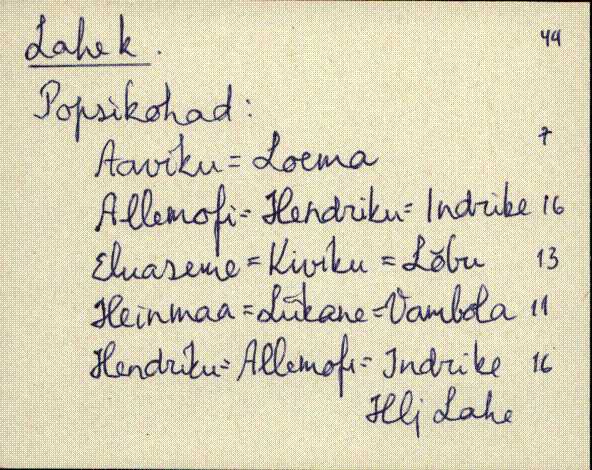 Lahe k. 44
Popsikohad:
Aaviku = Loema 7
Allemofi = Hendriku = Indrike 16
Eluaseme = Kiviku = Lõbu 13
Heinmaa = Lükane = Vambola 11
Hendriku = Allemofi = Indrike 16
Hlj Lahe